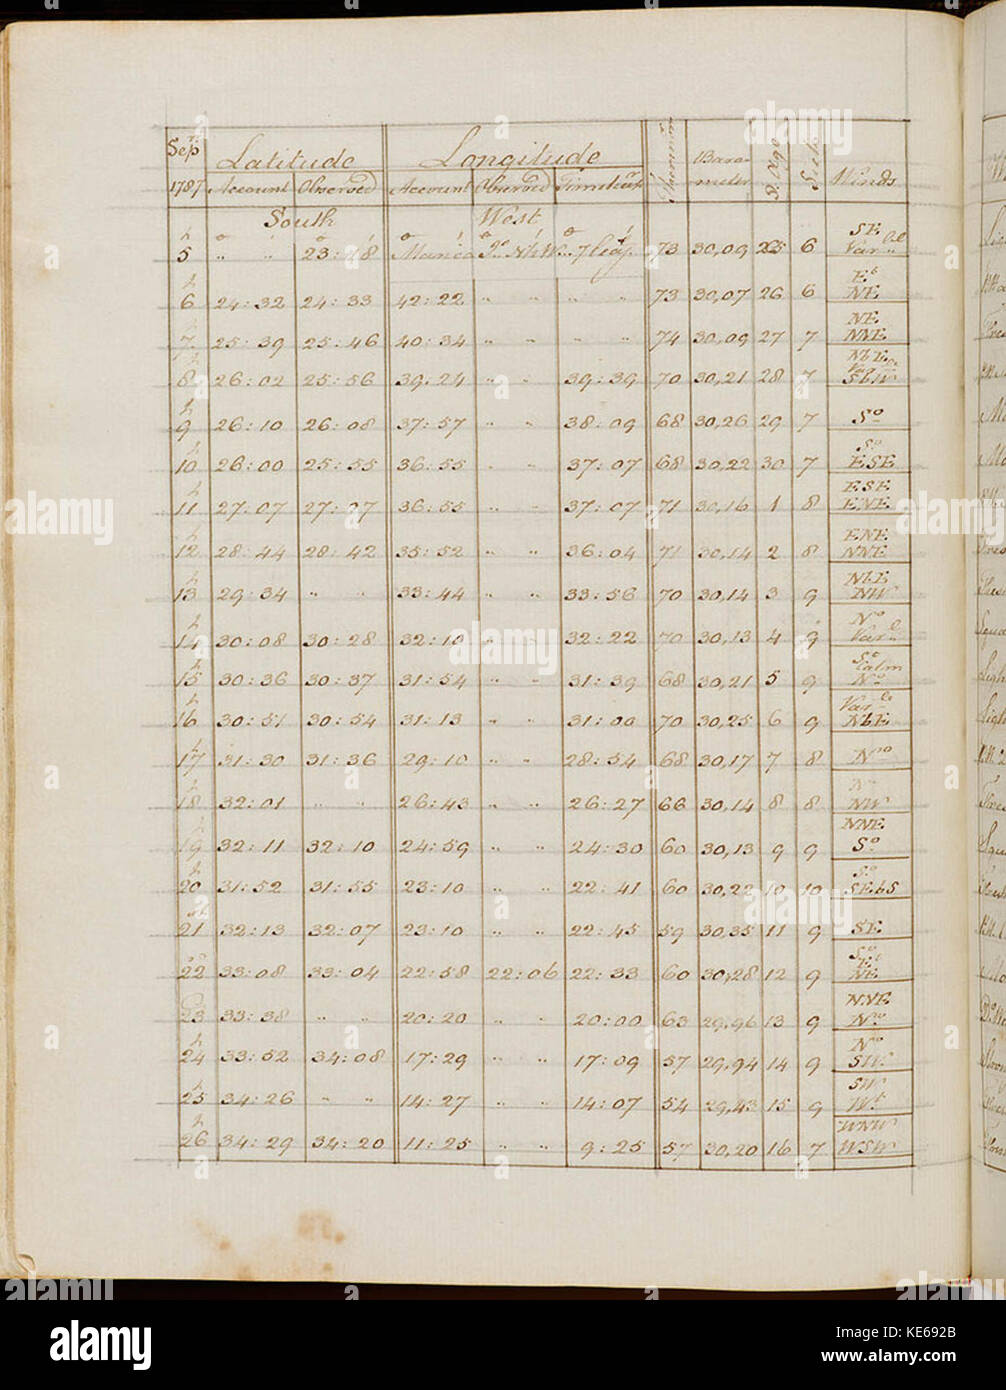 Sepr. Latitude Longitude Thermomr Baro- Winds
1787 Account Observed Account Observed meter Sick
South West
SE
5 " " 23:18 73 30,09 25 6 Varbl
Eb
6 24:32 24:33 42:22 " " " " 73 30,07 26 6 NE
NE
7 25:39 25:46 40:34 " " " " 74 30,09 27 7 NNE
NbE
8 26:02 25:56 39:24 " " 39:39 70 30,21 28 7 SbW
9 26:10 26:08 37:57 " " 38:09 68 30,26 29 7 So
So
10 26:00 25:55 36:55 " " 37:07 68 30,22 30 7 ESE
ESE
11 27:07 27:07 36:55 " " 37:07 71 30,16 1 8 ENE
ENE
12 28:44 28:42 35:52 " " 36:04 71 30,14 2 8 NNE
NbE
13 29:34 " " 33:44 " " 33:56 70 30,14 3 9 NW
No
14 30:08 30:28 32:10 " " 32:22 70 30,13 4 9 Varl
So
Calm
15 30:36 30:37 31:54 " " 31:39 68 30,21 5 9 No
Varle
16 30:51 30:54 31:13 " " 31:00 70 30,25 6 9 NbE
17 31:30 31:36 29:10 " " 28:54 68 30,17 7 8 No
No
18 32:01 " " 26:43 " " 26:27 66 30,14 8 8 NW
NNE
19 32:11 32:10 24:59 " " 24:30 60 30,13 9 9 So
So
20 31:52 31:55 23:10 " " 22:41 60 30,22 10 10 SEbS
21 32:13 32:07 23:10 " " 22:45 59 30,35 11 9 SE
So
22 33:08 33:04 22:58 22:06 22:33 60 30,28 12 9 NE
NNE
23 33:38 " " 20:20 " " 20:00 63 29,96 13 9 No
No
24 33:52 34:08 17:29 " " 17:09 57 29,94 14 9 SW
SW
25 34:26 " " 14:27 " " 14:07 54 29,43 15 9 Wt
WNW
26 34:29 34:20 11:25 " " 9:25 57 30,20 16 7 WSW
alamy
alamy
alamy
alamy
Image ID: KE692B
www.alamy.com